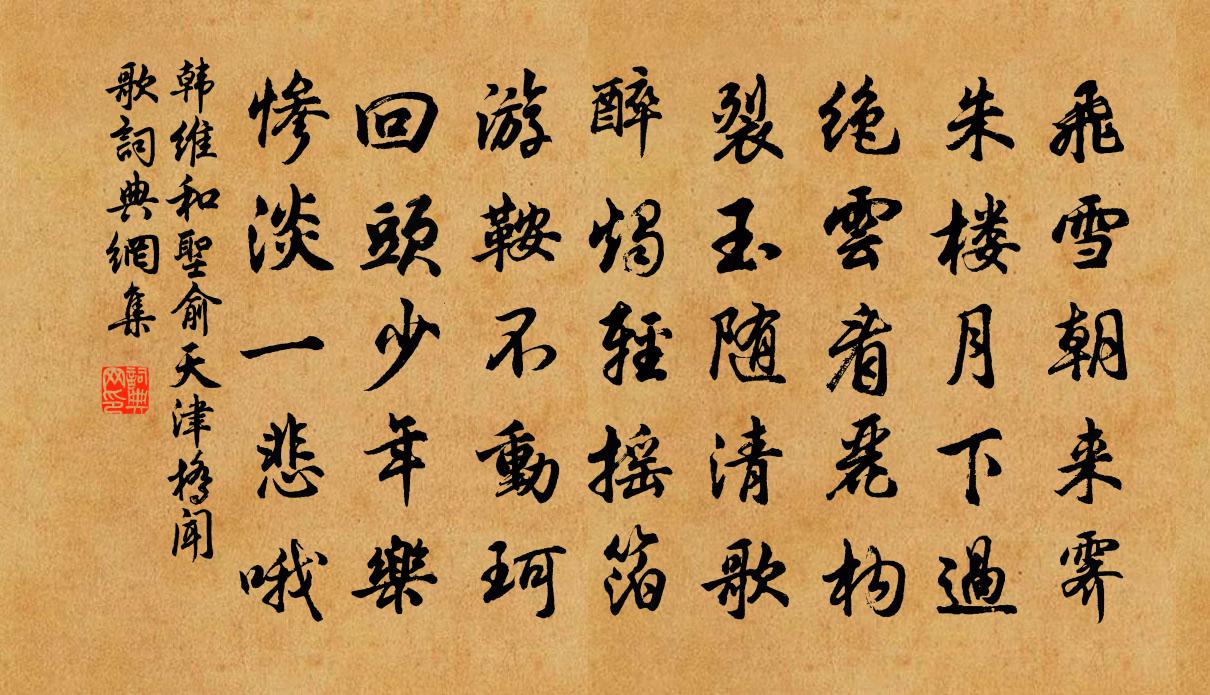 飛雪朝来霁
朱楼月下過
绝雲看麗构
裂玉随清歌
醉燭輕摇箔
游鞍不動珂
回頭少年樂
惨淡一悲哦
韩維和聖俞天津橋闻
歌詞典網集
詞典网印